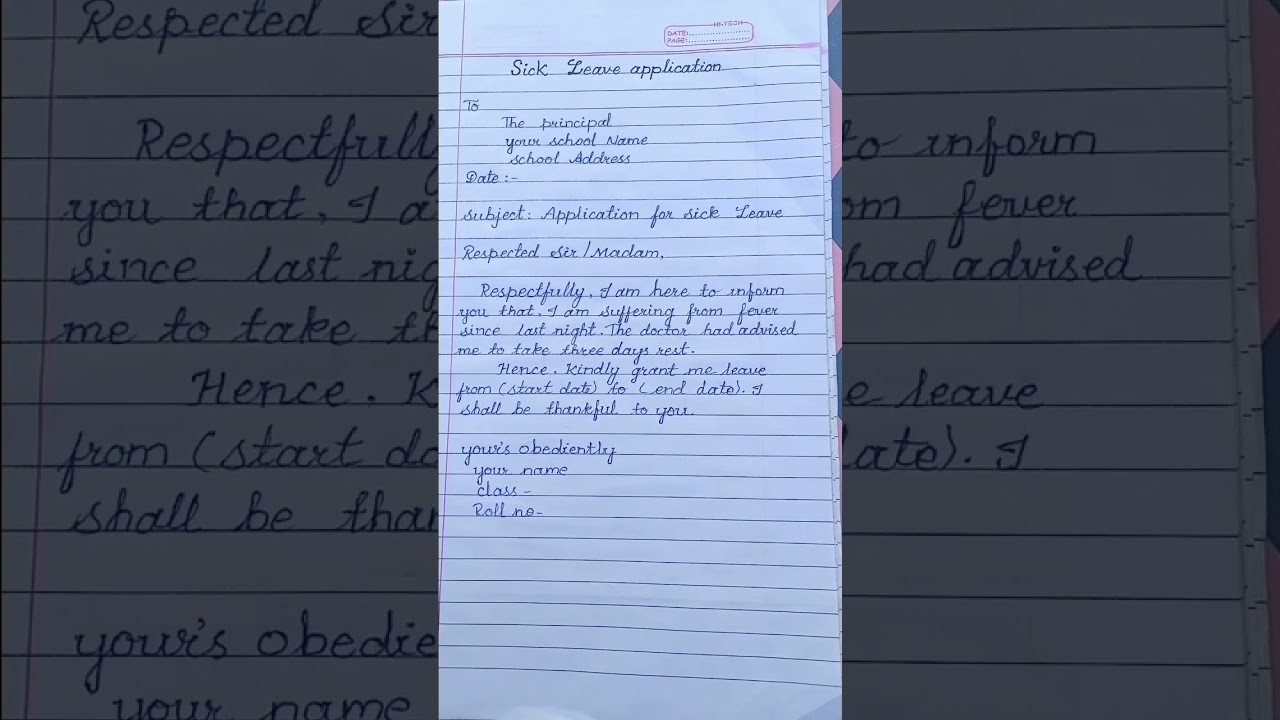 HI-TECH
DATE:
PAGE:
Sick Leave application
To
The principal
your school Name
school Address
Date :-
subject: Application for sick Leave
Respected Sir/Madam,
Respectfully, I am here to inform
you that, I am suffering from fever
since last night. The doctor had advised
me to take three days rest.
Hence, Kindly grant me leave
from (start date) to (end date). I
shall be thankful to you.
your's obediently
your name
class -
Roll no-